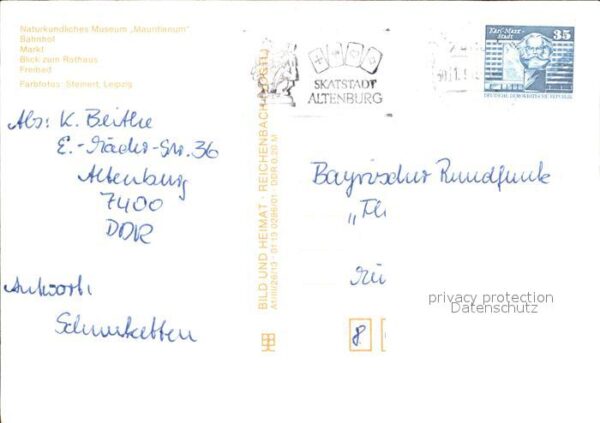 Naturkundliches Museum „Mauritianum"
Bahnhof
Markt
Blick zum Rathaus
Freibad
Farbfotos: Steinert, Leipzig
Abs: K. Beithe
36
Altenburg
7400
DDR
Antwort:
BILD UND HEIMAT · REICHENBACH
A1/III/26/13 · 01 13 0296/01 · DDR 0,20 M
SKATSTADT
ALTENBURG
Karl-Marx-
Stadt
35
DEUTSCHE DEMOKRATISCHE REPUBLIK
Bayrischer Rundfunk
8
privacy protection
Datenschutz